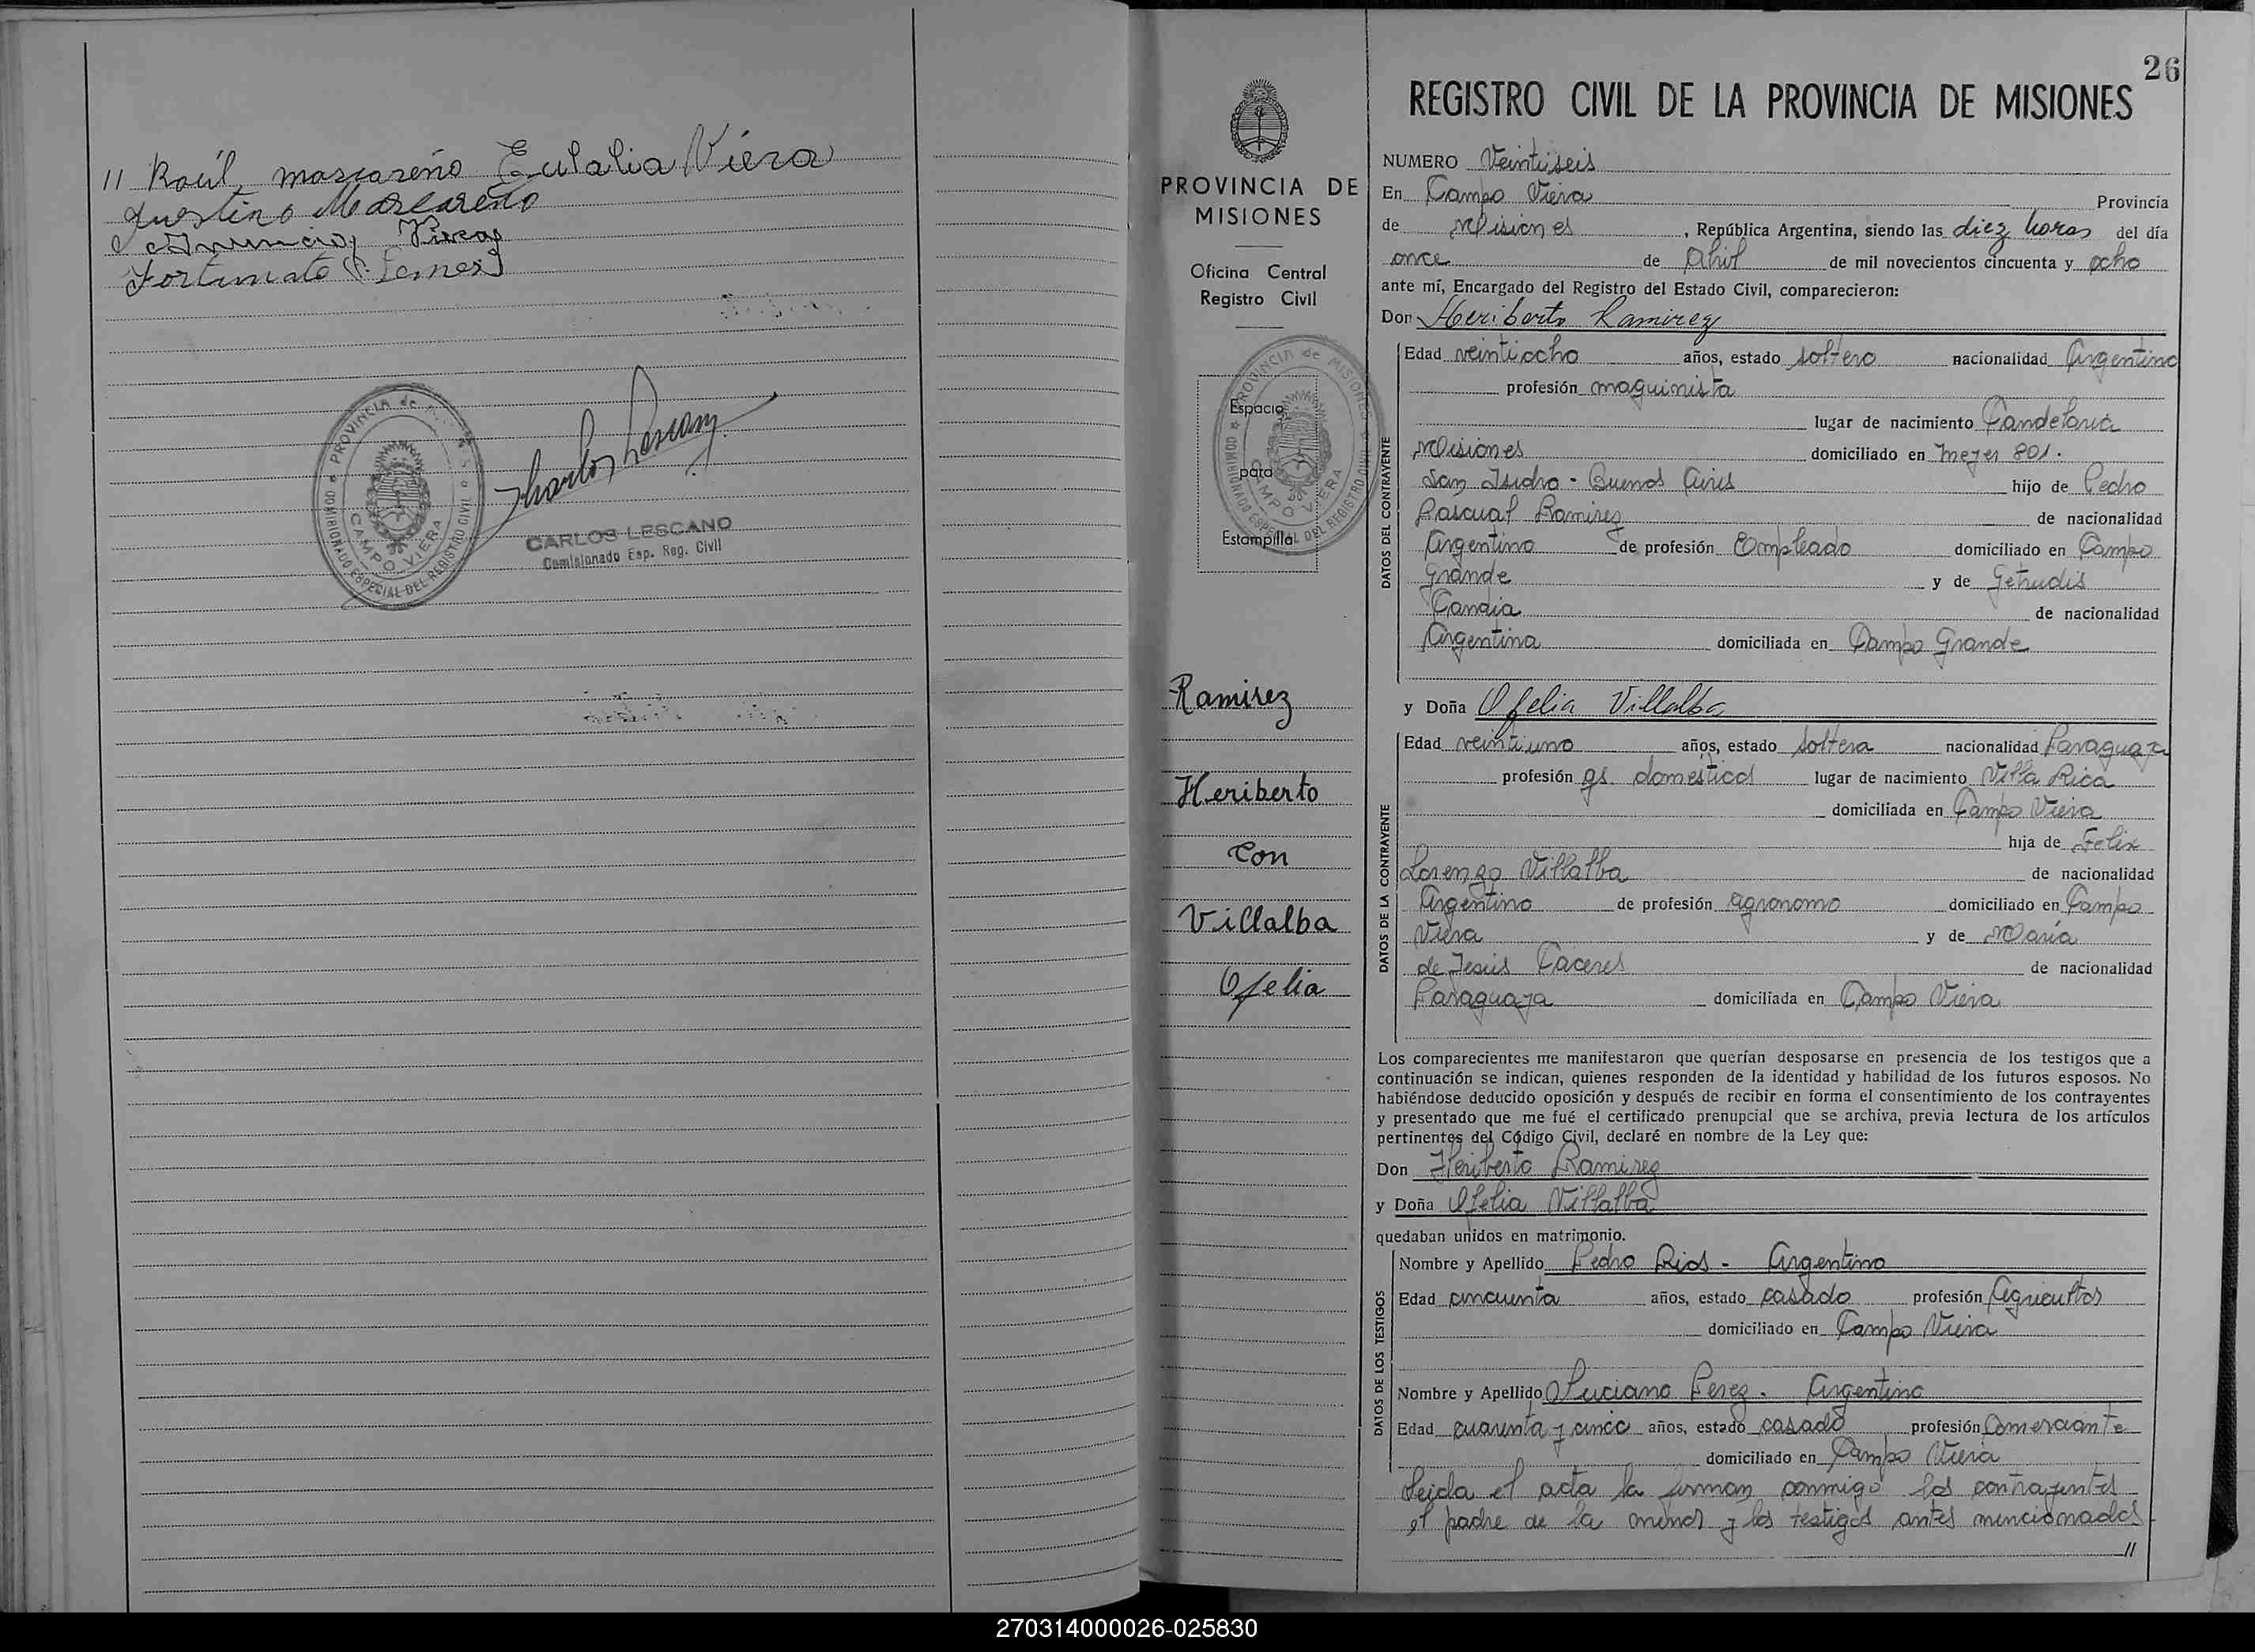 // Raúl mascareño Eulalia Viera
Mascareño
Viera
Fortunato
PROVINCIA de
COMISIONADO ESPECIAL DEL REGISTRO CIVIL
CAMPO VIERA
CARLOS LESCANO
Comisionado Esp. Reg. Civil
PROVINCIA DE
MISIONES
Oficina Central
Registro Civil
PROVINCIA de MISIONES
COMISIONADO ESPECIAL DEL REGISTRO CIVIL
CAMPO VIERA
Espacio
para
Estampilla
Ramirez
Heriberto
Con
Villalba
Ofelia
26
REGISTRO CIVIL DE LA PROVINCIA DE MISIONES
NUMERO Veintiseis
En Campo Viera Provincia
de Misiones, República Argentina, siendo las diez horas del día
once de Abril de mil novecientos cincuenta y ocho
ante mí, Encargado del Registro del Estado Civil, comparecieron:
Don Heriberto Ramirez
DATOS DEL CONTRAYENTE
Edad veintiocho años, estado soltero nacionalidad Argentino
profesión maquinista
lugar de nacimiento Candelaria
Misiones domiciliado en 801.
San Isidro - Buenos Aires hijo de Pedro
Pascual Ramirez de nacionalidad
Argentino de profesión Empleado domiciliado en Campo
Grande y de Getrudis
Candia de nacionalidad
Argentina domiciliada en Campo Grande
y Doña Ofelia Villalba
DATOS DE LA CONTRAYENTE
Edad veintiuno años, estado soltera nacionalidad Paraguaya
profesión qs. domesticos lugar de nacimiento Villa Rica
domiciliada en Campo Viera
hija de Felix
Lorenzo Villalba de nacionalidad
Argentino de profesión agronomo domiciliado en Campo
Viera y de María
de Jesús Caceres de nacionalidad
Paraguaya domiciliada en Campo Viera
Los comparecientes me manifestaron que querían desposarse en presencia de los testigos que a
continuación se indican, quienes responden de la identidad y habilidad de los futuros esposos. No
habiéndose deducido oposición y después de recibir en forma el consentimiento de los contrayentes
y presentado que me fué el certificado prenupcial que se archiva, previa lectura de los artículos
pertinentes del Código Civil, declaré en nombre de la Ley que:
Don Heriberto Ramirez
y Doña Ofelia Villalba
quedaban unidos en matrimonio.
DATOS DE LOS TESTIGOS
Nombre y Apellido Pedro Rios - Argentino
Edad cincuenta años, estado casado profesión Agricultor
domiciliado en Campo Viera
Nombre y Apellido Luciano Perez. Argentino
Edad cuarenta y cinco años, estado casado profesión Comerciante
domiciliado en Campo Viera
Leida el acta la firman conmigo los contrayentes
el padre de la menor y los testigos antes mencionados
//
270314000026-025830